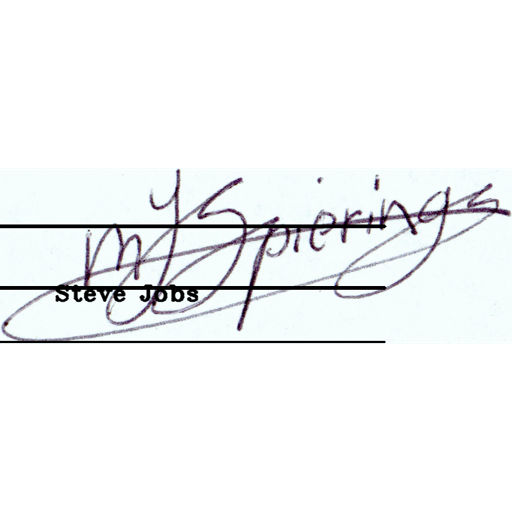 MY Spierings
Steve Jobs